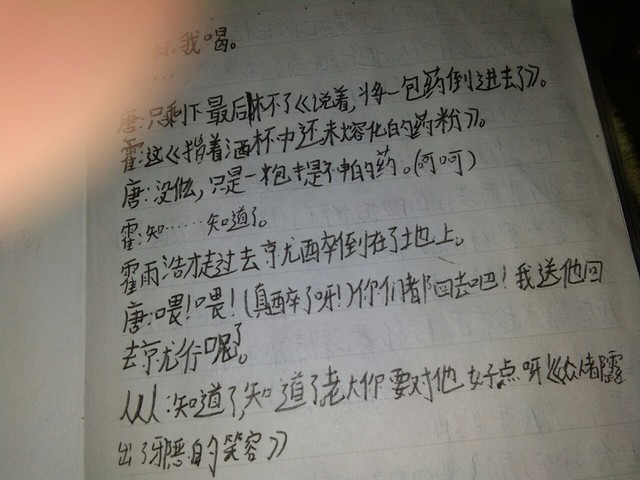 我喝。
……
唐:只剩下最后杯不了《说着,将一包药倒进去了》。
霍:这《指着酒杯中还未熔化的药粉》。
唐:没什么,只是一包提神的药。(呵呵)
霍:知……知道了。
霍雨浩才走过去就醉倒在了土地上。
唐:喂!喂!(真醉了呀!)你们都回去吧!我送他回
去就行呢了。
从从:知道了,知道了老大你要对他好点呀《众都露
出了邪恶的笑容》